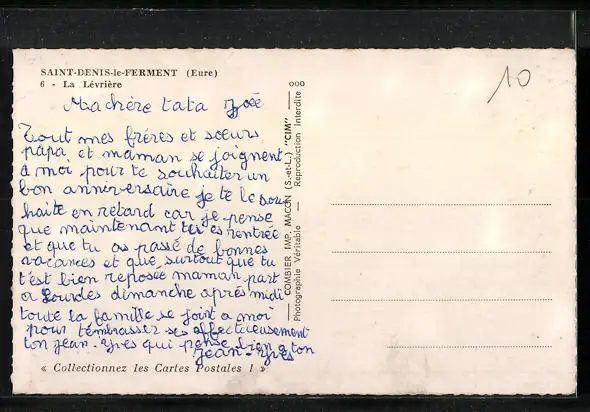 SAINT-DENIS-le-FERMENT (Eure)
6 - La Lévrière
10
Machère tata Zoé
Tout mes frères et soeurs
papa et maman se joignent
à moi pour te souhaiter un
bon anniversaire je te le sou
haite en retard car je pense
que maintenant tu es rentrée
et que tu as passé de bonnes
vacances et que surtout que tu
t'est bien reposée maman part
a Lourdes dimanche après midi
toute la famille se joint a moi
pour t'embrasser affectueusement
ton jean-Yves qui pense bien a ton
Jean-Yves
« Collectionnez les Cartes Postales ! »
COMBIER IMP. MACON (S.-et-L.) "CIM"
Photographie Véritable — Reproduction Interdite